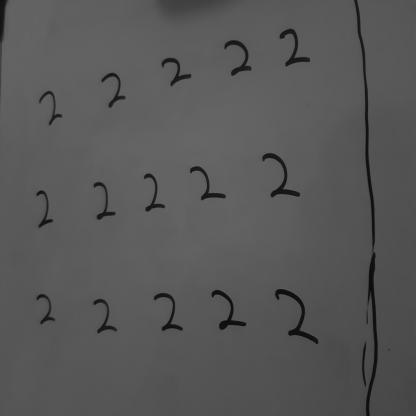 2 2 2 2 2
2 2 2 2 2
2 2 2 2 2